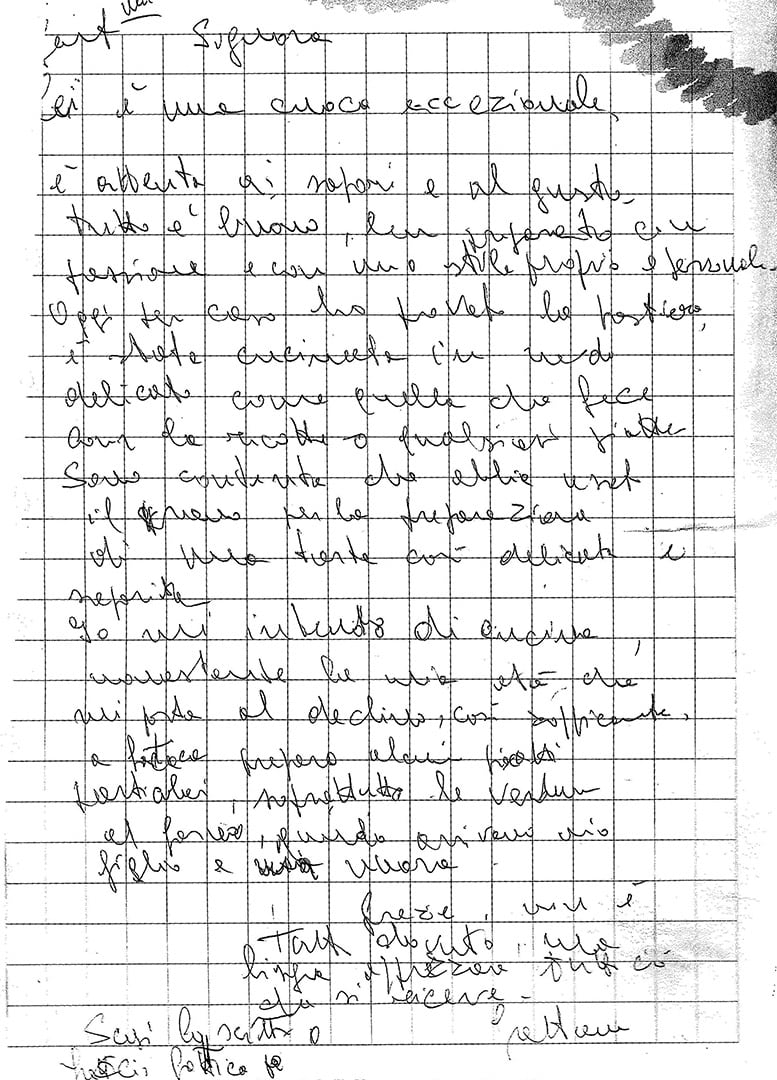 Signora
è una cuoca eccezionale,
è attenta ai sapori e al gusto
tutto è buono, ben preparato con
passione e con uno stile proprio e personale.
Oggi per caso ho provato la pastiera,
è stata cucinata in modo
delicato come quella che fece
con la ricotta o qualsiasi piatto
Sono contenta che abbia usato
il grano per la preparazione
di una torta così delicata e
saporita
Io mi intendo di cucina,
nonostante la mia età che
mi porta al declino, così
a fatica preparo alcuni piatti
particolari, soprattutto le verdure
al forno, quando arrivano mio
figlio e mia nuora.
Grazie, non è
Tutto dovuto,
bisogna apprezzare tutto ciò
che si riceve.
Scusi la scrittura
fatica